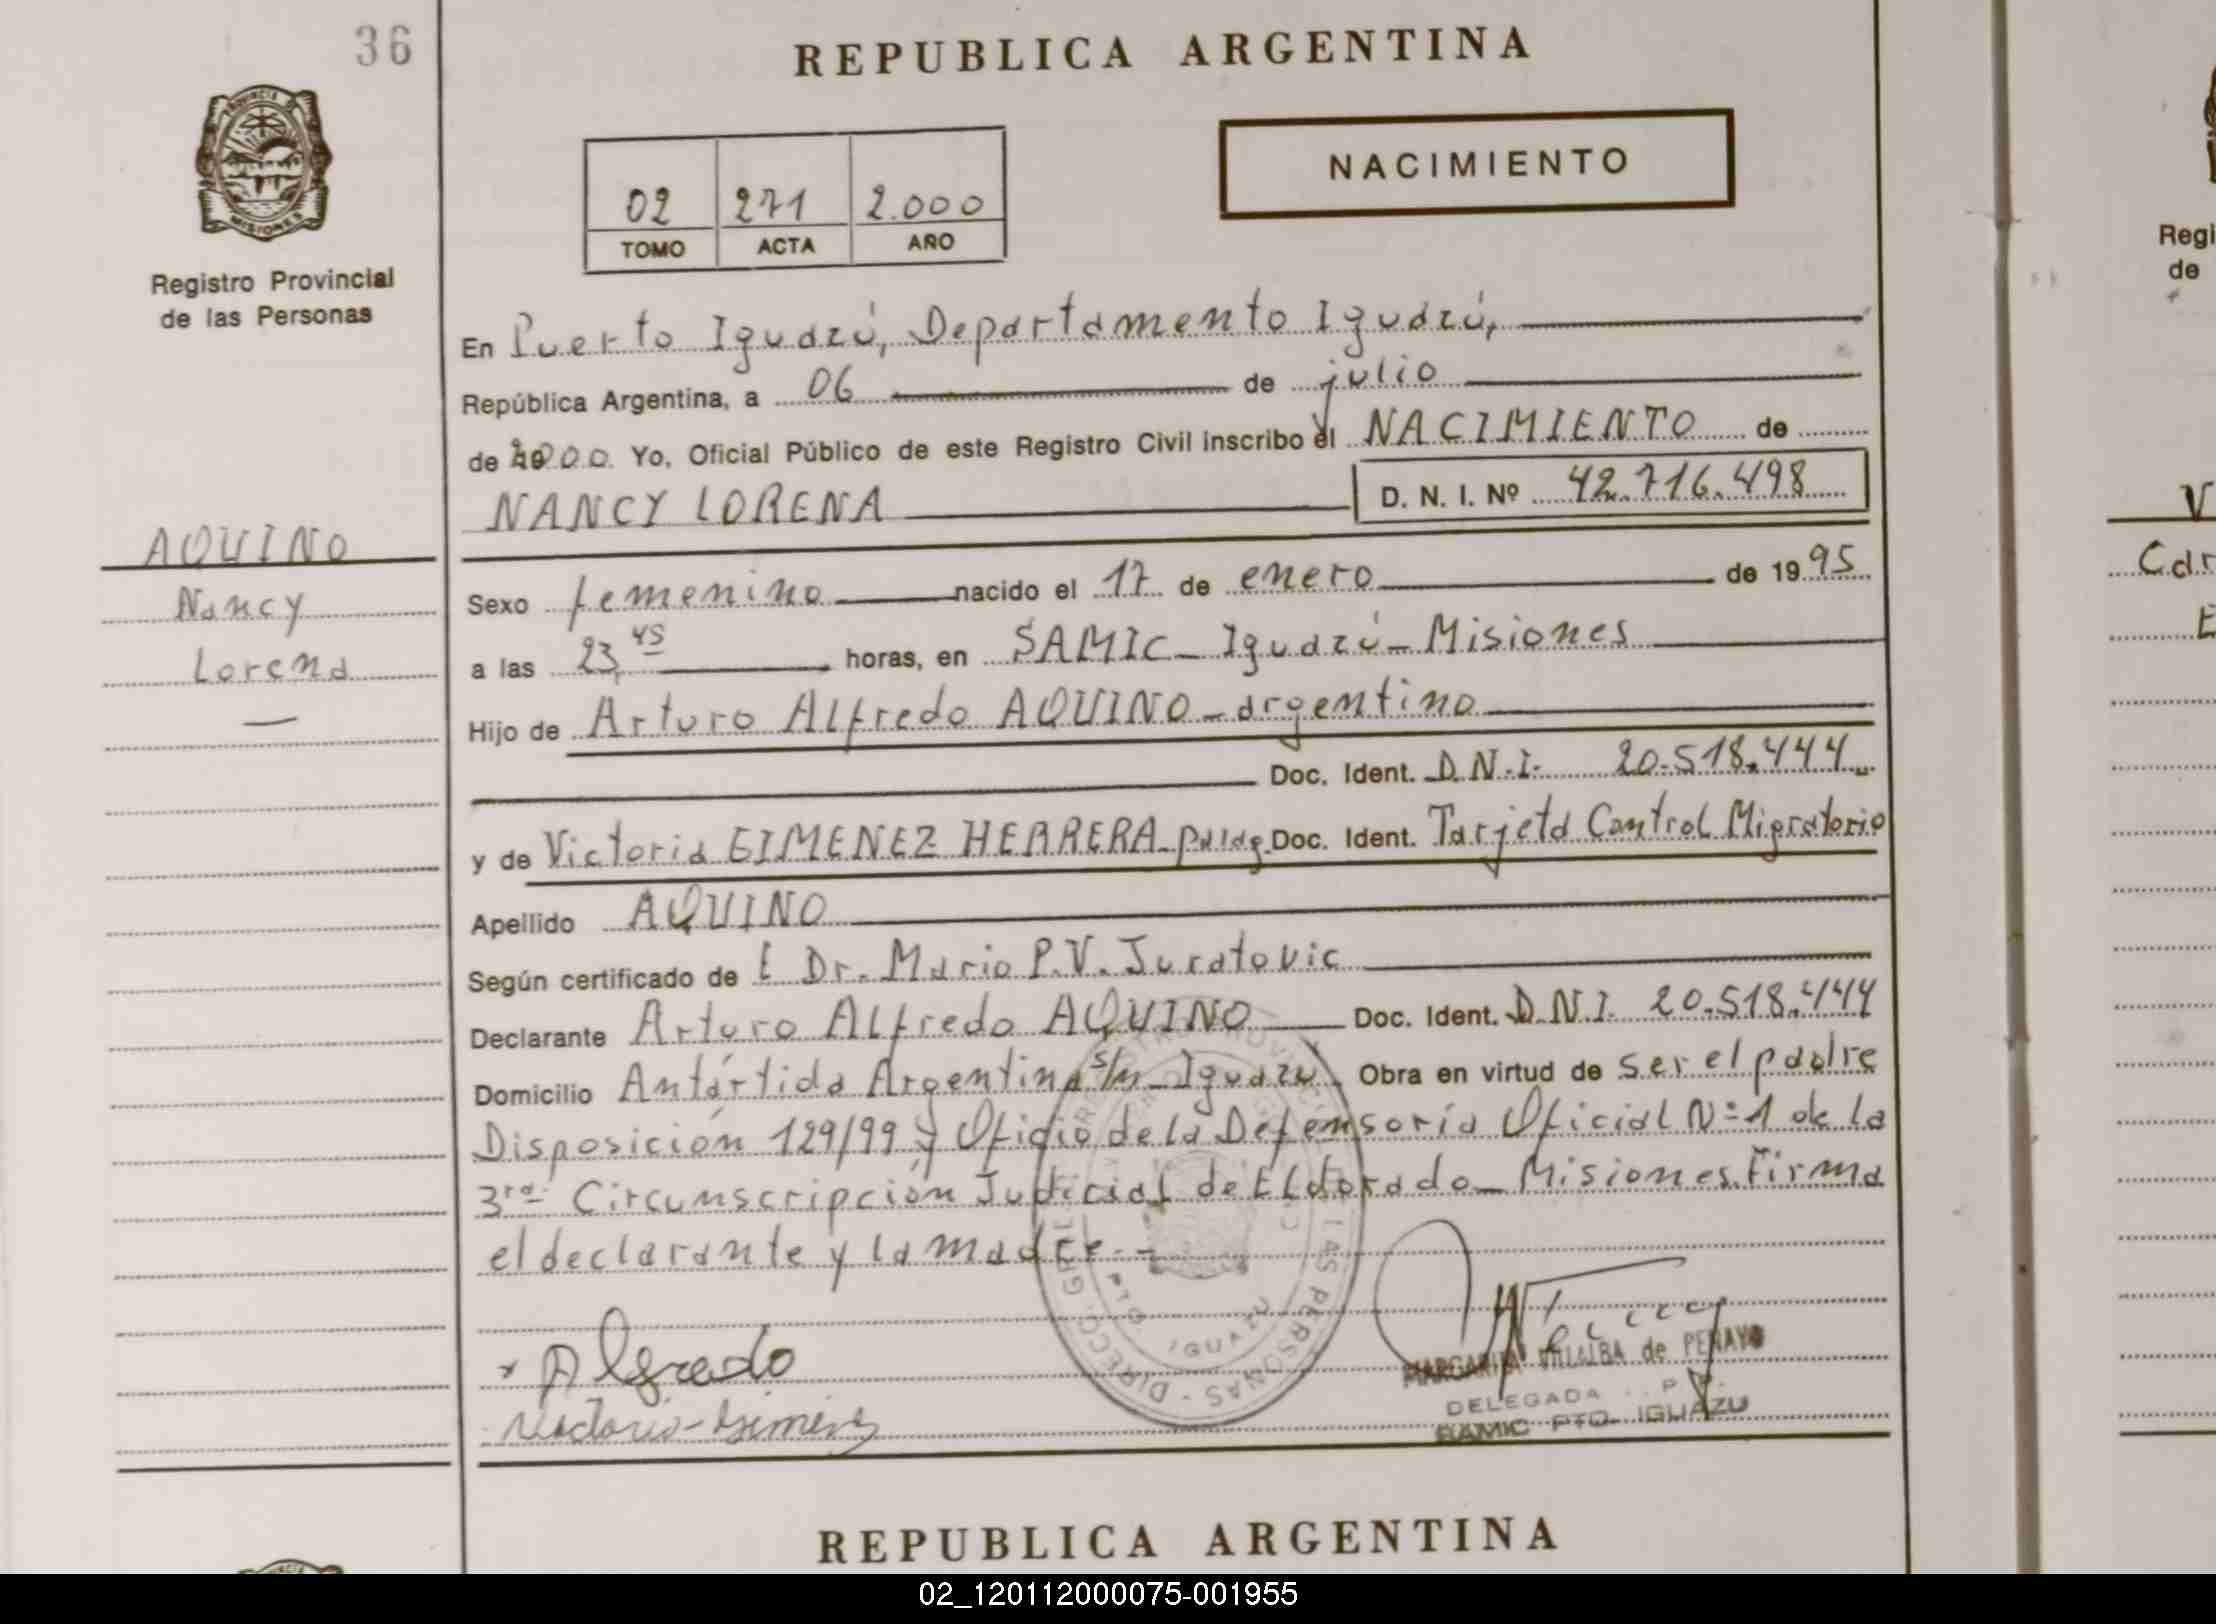 36
REPUBLICA ARGENTINA
PROVINCIA DE
MISIONES
NACIMIENTO
02 271 2.000
TOMO ACTA AÑO
Registro Provincial
de las Personas
En Puerto Iguazú, Departamento Iguazú,
República Argentina, a 06 de julio
de 2000. Yo, Oficial Público de este Registro Civil inscribo el NACIMIENTO de
NANCY LORENA D. N. I. Nº 42.716.498
AQUINO
Nancy
Lorena
Sexo femenino nacido el 17 de enero de 1995
a las 23,45 horas, en SAMIC - Iguazú - Misiones
Hijo de Arturo Alfredo AQUINO - argentino
Doc. Ident. D.N.I. 20.518.444
y de Victoria GIMENEZ HERRERA - Doc. Ident. Tarjeta Control Migratorio
Apellido AQUINO
Según certificado de Dr. Mario P.V. Juratovic
Declarante Arturo Alfredo AQUINO Doc. Ident. D.N.I. 20.518.444
Domicilio Antártida Argentina s/n - Iguazú. Obra en virtud de ser el padre
Disposición 129/99 y Oficio de la Defensoría Oficial Nº 1 de la
3ra. Circunscripción Judicial de Eldorado - Misiones. Firma
el declarante y la madre. -
Alfredo
MARGARITA VILLALBA de PENAYO
DELEGADA
SAMIC PTO. IGUAZU
REPUBLICA ARGENTINA
02_120112000075-001955